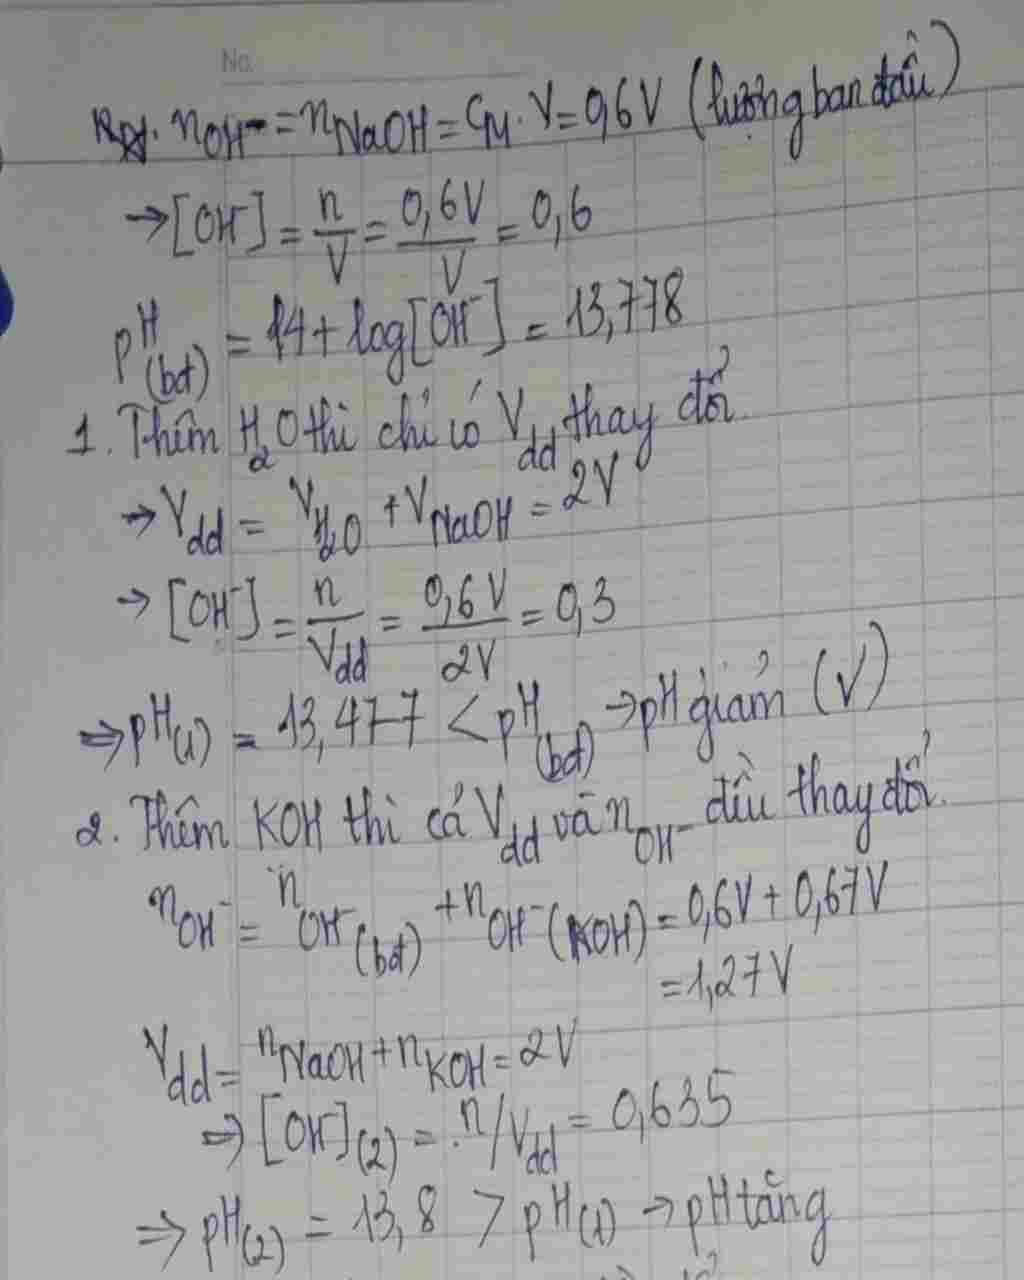 No.
nOH- = nNaOH = CM. V = 0,6V (lượng ban đầu)
→ [OH-] = n/V = 0,6V/V = 0,6
pH(bđ) = 14 + log[OH-] = 13,778
1. Thêm H2O thì chỉ có Vdd thay đổi.
→ Vdd = VH2O + VNaOH = 2V
→ [OH-] = n/Vdd = 0,6V/2V = 0,3
⇒ pH(1) = 13,477 < pH(bđ) → pH giảm (V)
2. Thêm KOH thì cả Vdd và nOH- đều thay đổi.
nOH- = nOH-(bđ) + nOH-(KOH) = 0,6V + 0,67V
= 1,27V
Vdd = nNaOH + nKOH = 2V
⇒ [OH-](2) = n/Vdd = 0,635
⇒ pH(2) = 13,8 > pH(1) → pH tăng